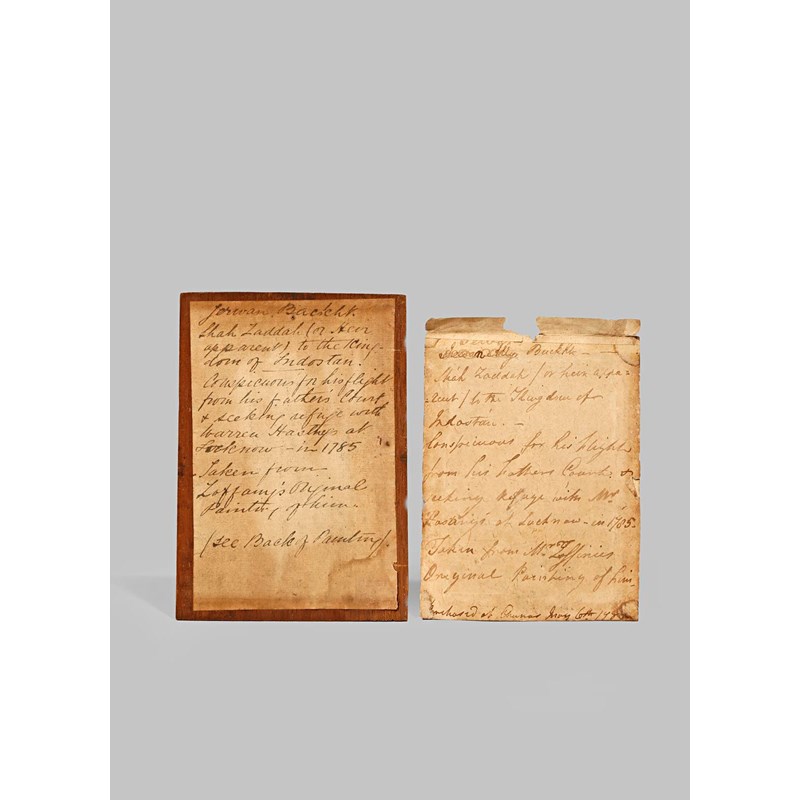 Jerwan Backht.
Shah Zaddah (or Heir
apparent) to the King-
dom of Indostan.
Conspicuous for his flight
from his Father's Court,
& seeking refuge with
Warren Hastings at
Locknow - in 1785
Taken from
Zoffany's Original
Painting of him.
(see Back of Painting).
Buckht -
Shah Zaddah (or heir appa-
-rent) to the Kingdom of
Indostan. -
Conspicuous for his flight
from his Fathers Court &
seeking Refuge with Mr.
at Lucknow - in 1785-
Taken from Mr.
Original Painting of him
at May 6th